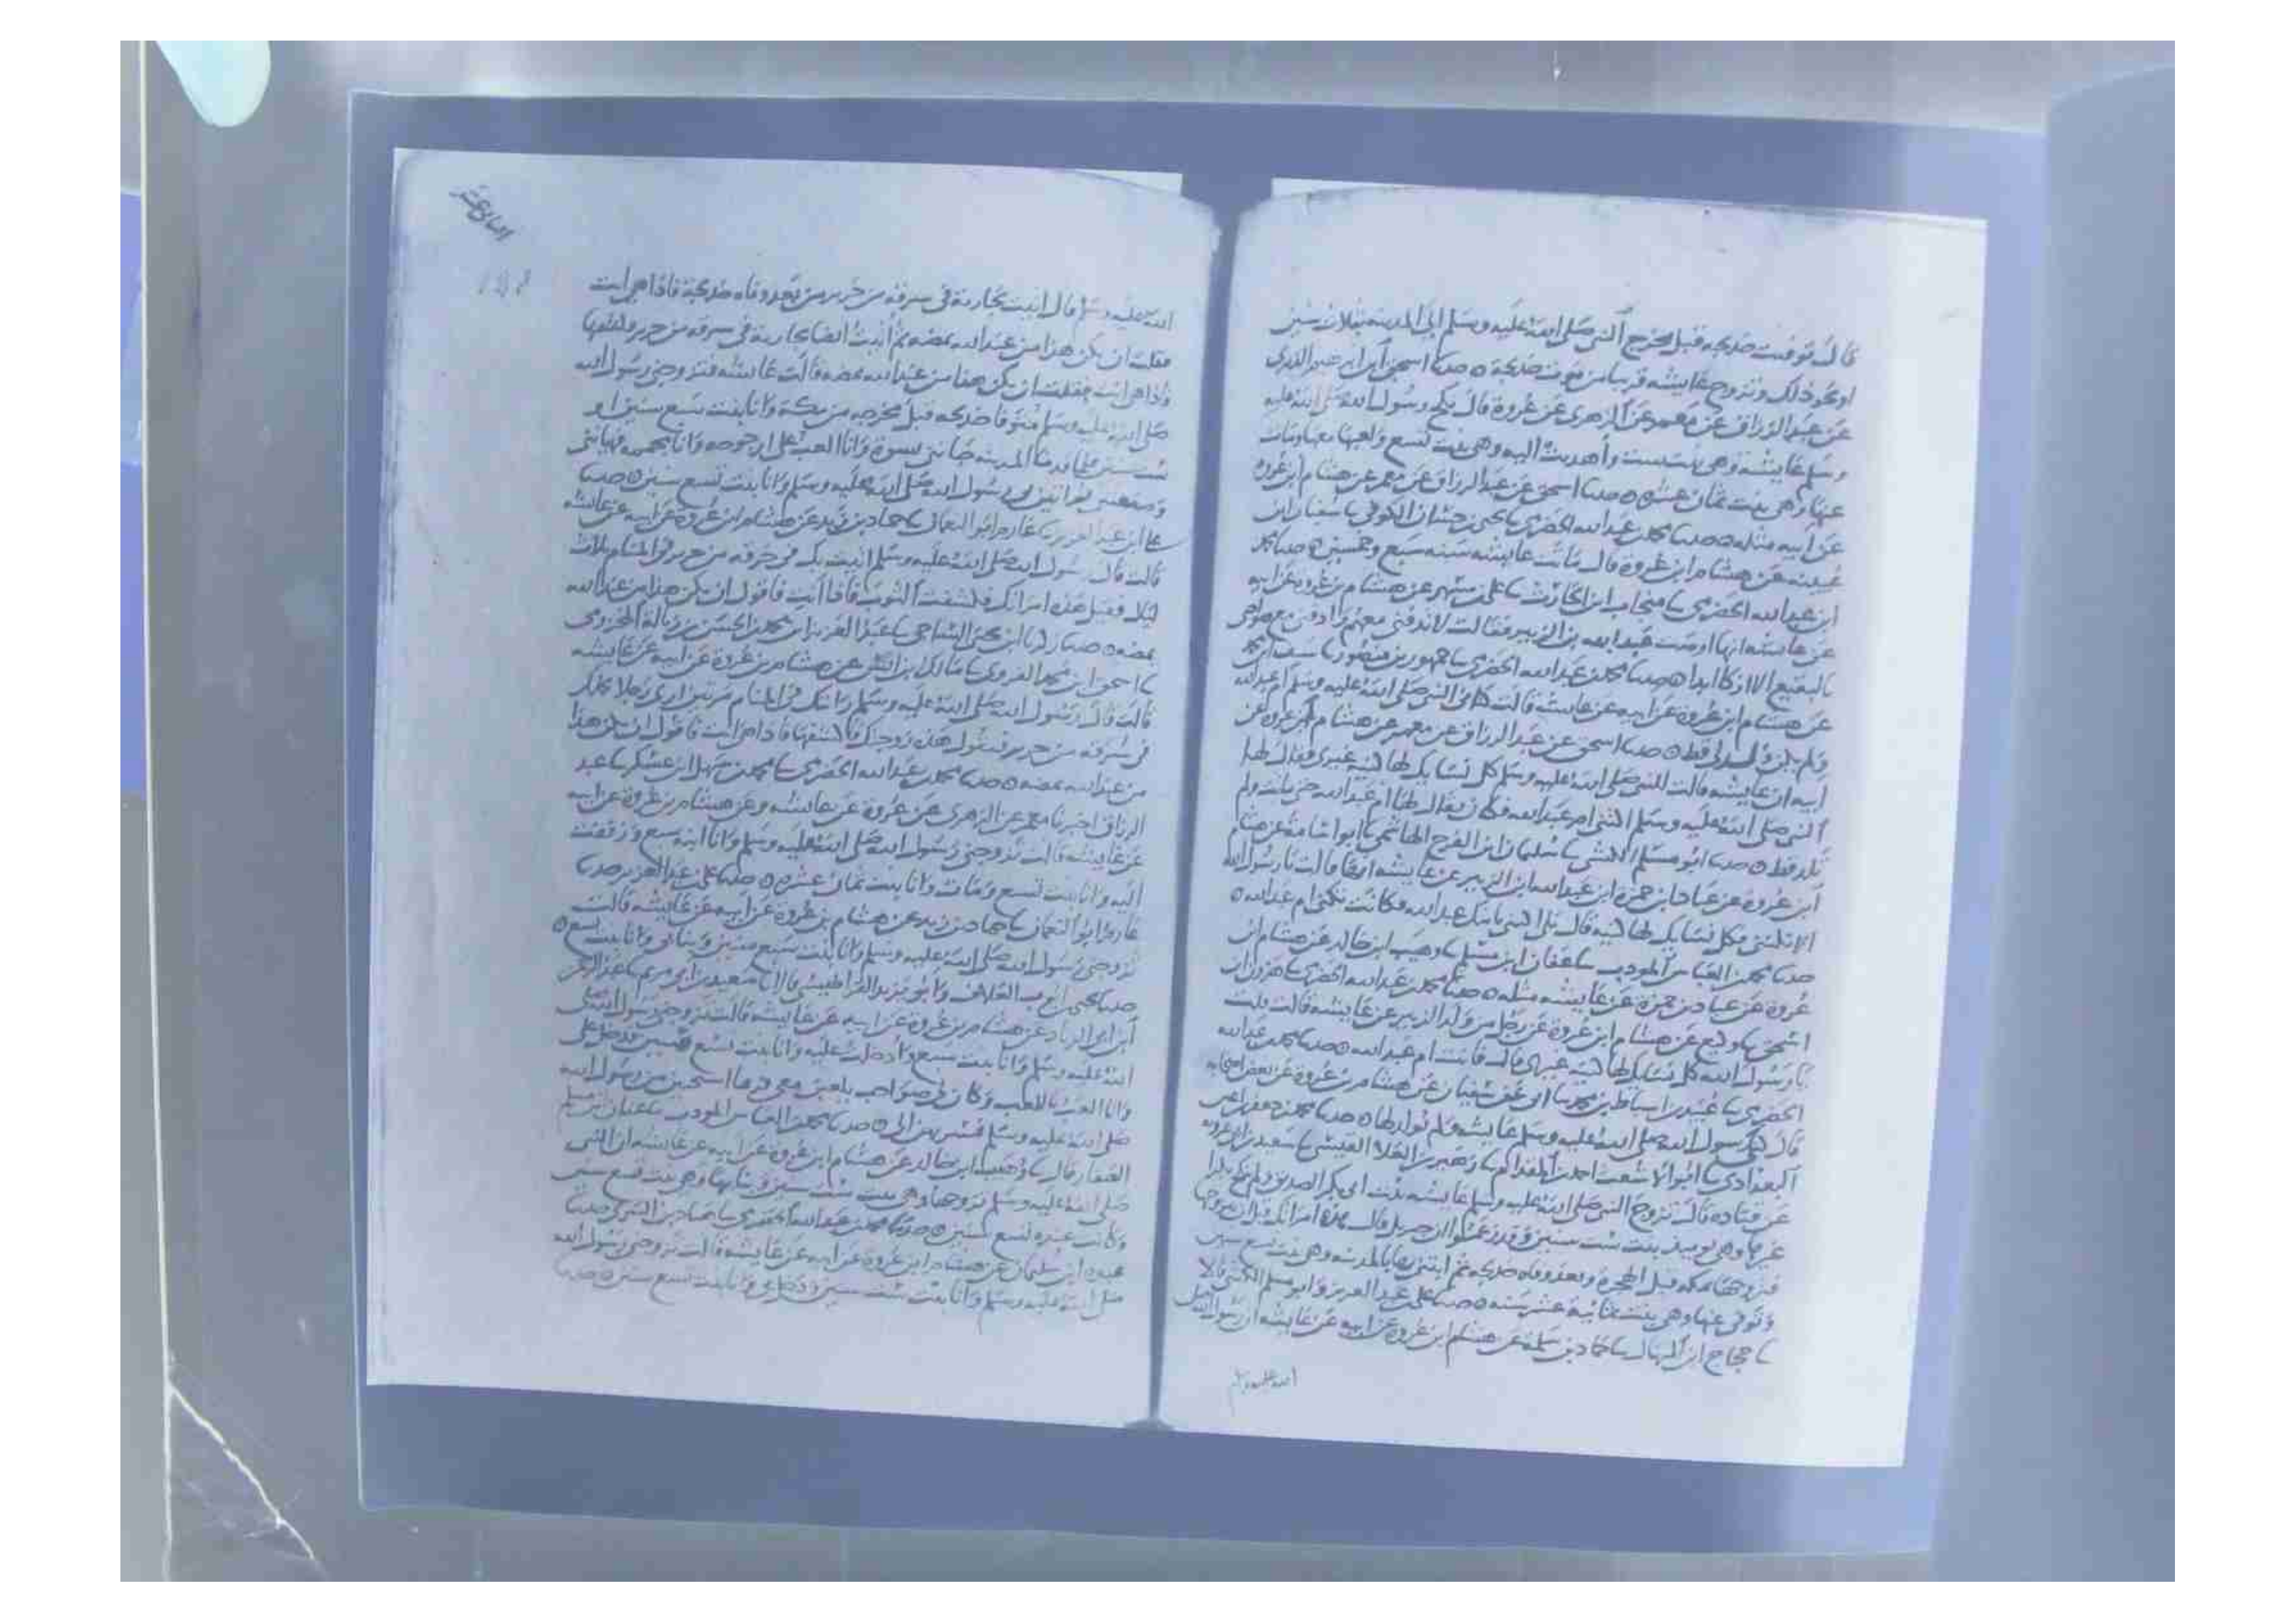 قال توفيت خديجة قبل مخرج النبي صلى الله عليه وسلم الى المدينة بثلاث سنين
او نحو ذلك وتزوج عايشه قريبا من موت خديجة ٥ حدثنا اسحق ابن ابرهيم الدبري
عن عبد الرزاق عن معمر عن الزهري عن عروة قال نكح رسول الله صلى الله عليه
وسلم عايشه وهي بنت ست وأهديت اليه وهي بنت تسع ولعبها معها ومات
عنها وهي بنت ثمان عشرة ٥ حدثنا اسحق عن عبد الرزاق عن معمر عن هشام ابن عروة
عن ابيه مثله ٥ حدثنا محمد بن عبد الله الحضرمي يحيى بن حسان الكوفي سفيان ابن
عيينه عن هشام ابن عروة قال ماتت عايشه سنه سبع وخمسين ٥ حدثنا محمد
ابن عبد الله الحضرمي منجاب ابن الحارث علي بن مسهر عن هشام بن عروه عن ابيه
عن عايشه انها اوصت عبد الله بن الزبير فقالت لا تدفني معهم وادفني مع صواحبي
بالبقيع لا ازكا ابدا ٥ حدثنا محمد بن عبد الله الحضرمي جمهور بن منصور سيف ابن محمد
عن هشام ابن عروه عن ابيه عن عايشه قالت كناني النبي صلى الله عليه وسلم ام عبد الله
ولم يكن ولد لي قط ٥ حدثنا اسحق عن عبد الرزاق عن معمر عن هشام ابن عروه عن
ابيه ان عايشه قالت للنبي صلى الله عليه وسلم كل نسايك لها كنيه غيري فقال لها
النبي صلى الله عليه وسلم اكتني ام عبد الله فكان يقال لها ام عبد الله حتى ماتت ولم
تلد قط ٥ حدثنا ابو مسلم الكشي سليمان ابن الفرج الهاشمي ابو اسامة عن هشام
ابن عروة عن عباد ابن حمزة ابن عبد الله ابن الزبير عن عايشه انها قالت يا رسول الله
الا تكنني فكل نسايك لها كنيه قال بلى اكتني بابنك عبد الله فكانت تكنى ام عبد الله ٥
حدثنا محمد بن العباس المودب عفان ابن مسلم وهيب ابن خالد عن هشام ابن
عروة عن عباد بن حمزة عن عايشه مثله ٥ حدثنا محمد بن عبد الله الحضرمي هرون ابن
اسحق وكيع عن هشام ابن عروة عن رجل من ولد الزبير عن عايشه قالت قلت
يا رسول الله كل نسايك لها كنيه غيري قال فانت ام عبد الله ٥ حدثنا محمد بن عبد الله
الحضرمي عبيد بن اسباط بن محمد ابي عن سفيان عن هشام بن عروة عن بعض اصحابه
قال كنى رسول الله صلى الله عليه وسلم عايشه ولم يولد لها ٥ حدثنا محمد بن جعفر ابن اعين
البغدادي ابو الاشعث احمد بن المقدام زهير بن العلا القيسي سعيد بن ابي عروبة
عن قتاده قال تزوج النبي صلى الله عليه وسلم عايشه بنت ابي بكر الصديق ولم ينكح بكرا
غيرها وهي يوميذ بنت ست سنين وقد زعموا ان جبريل قال هذه امراتك قبل ان يتزوجها
فتزوجها بمكه قبل الهجرة وبعد وفاه خديجة ثم ابتنى بها بالمدينه وهي بنت تسع سنين
وتوفي عنها وهي بنت ثمانية عشر سنه ٥ حدثنا علي بن عبد العزيز وابو مسلم الكشي قالا
حجاج ابن المنهال حماد بن سلمة عن هشام ابن عروة عن ابيه عن عايشه ان رسول الله صلى
الله عليه وسلم
السابع عشر
الله عليه وسلم قال اتيت بجارية في سرقه من حرير من بعد وفاه خديجة فاذا هي انت
فقلت ان يكن هذا من عند الله يمضه ثم أتيت ايضا بجارية في سرقه من حرير فكشفتها
فاذا هي انت فقلت ان يكن هذا من عند الله يمضه قالت عايشه فتزوجني رسول الله
صلى الله عليه وسلم متوفا خديجه قبل مخرجه من مكة وانا بنت سبع سنين او
ست سنين فلما قدمنا المدينه جاتني نسوة وانا العب على ارجوحه وانا مجممه فهياتني
وصنعنني ثم اتين بي رسول الله صلى الله عليه وسلم وانا بنت تسع سنين ٥ حدثنا
علي ابن عبد العزيز عارم ابو النعمان حماد بن زيد عن هشام ابن عروة عن ابيه عن عايشه
قالت قال رسول الله صلى الله عليه وسلم اتيت بك في خرقه من حرير في المنام ثلاث
ليال وقيل هذه امراتك فكشفت الثوب فاذا انت فاقول ان يكن هذا من عند الله
يمضه ٥ حدثنا زكريا ابن يحيى الساجي عبد العزيز ابن محمد بن الحسن بن زبالة المخزومي
اسحق ابن محمد الفروي مالك بن انس عن هشام بن عروة عن ابيه عن عايشه
قالت قال رسول الله صلى الله عليه وسلم رايتك في المنام مرتين ارى رجلا يحملك
في سرقه من حرير فيقول هذه زوجتك فاكشفها فاذا هي انت فاقول ان يكن هذا
من عند الله يمضه ٥ حدثنا محمد بن عبد الله الحضرمي محمد بن سهل ابن عسكر عبد
الرزاق اخبرنا معمر عن الزهري عن عروة عن عايشه وعن هشام بن عروة عن ابيه
عن عايشه قالت تزوجني رسول الله صلى الله عليه وسلم وانا ابنه سبع وزففت
اليه وانا بنت تسع ومات وانا بنت ثمان عشرة ٥ حدثنا علي بن عبد العزيز حدثنا
عارم ابو النعمان حماد بن زيد عن هشام بن عروة عن ابيه عن عايشه قالت
تزوجني رسول الله صلى الله عليه وسلم وانا بنت سبع سنين وبنا بي وانا بنت تسع ٥
حدثنا يحيى ابن ايوب العلاف وابو يزيد القراطيسي قالا سعيد بن ابي مريم عبد الرحمن
ابن ابي الزناد عن هشام بن عروة عن ابيه عن عايشه قالت تزوجني رسول الله صلى
الله عليه وسلم وانا بنت سبع وادخلت عليه وانا بنت تسع سنين فدخل علي
وانا العب باللعب وكان لي صواحب يلعبن معي فربما استحيين من رسول الله
صلى الله عليه وسلم فيسربهن الي ٥ حدثنا محمد بن العباس المودب عفان ابن مسلم
الصفار قال وهيب ابن خالد عن هشام ابن عروة عن ابيه عن عايشه ان النبي
صلى الله عليه وسلم تزوجها وهي بنت ست سنين وبنا بها وهي بنت تسع سنين
وكانت عنده تسع سنين ٥ حدثنا محمد بن عبد الله الحضرمي هناد بن السري حدثنا
عبده ابن سليمان عن هشام ابن عروة عن ابيه عن عايشه قالت تزوجني رسول الله
صلى الله عليه وسلم وانا بنت ست سنين ودخل بي وانا بنت تسع سنين ٥ حدثنا